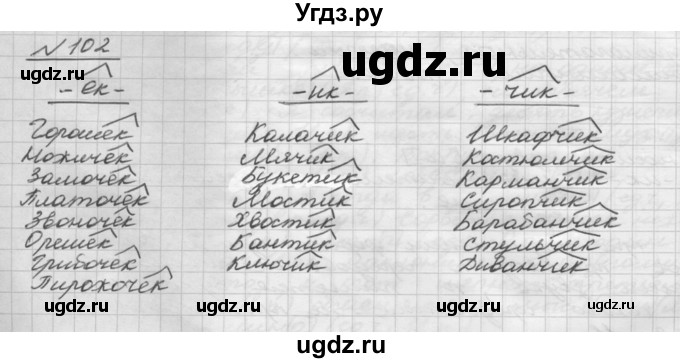 Угдз.ру
N 102
ugdz.ru
ugdz.ru
ugdz.ru
-ек-
-ик-
-чик-
Горошек
Ножичек
Замочек
Платочек
Звоночек
Орешек
Грибочек
Пирожочек
Калачик
Мячик
Букетик
Мостик
Хвостик
Бантик
Ключик
Шкафчик
Костюмчик
Карманчик
Сиропчик
Барабанчик
Стульчик
Диванчик
ugdz.ru
ugdz.ru
ugdz.ru
ugdz.ru